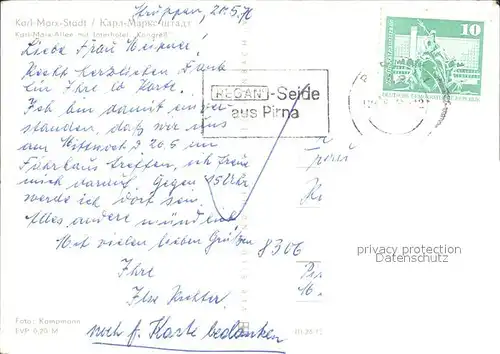 Karl-Marx-Stadt / Карл-Маркс-Штадт
Karl-Marx-Allee mit Interhotel „Kongreß"
Struppen, 20.5.76
Liebe Frau Meixner!
Recht herzlichen Dank
für Ihre lb. Karte.
Ich bin damit einver-
standen, daß wir uns
am Mittwoch d. 26.5. im
Fährhaus treffen, ich freue
mich darauf. Gegen 15 Uhr
werde ich dort sein.
Alles andere mündlich
Mit vielen lieben Grüßen
Ihre
Ilse Richter.
noch f. Karte bedanken
REGANT-Seide
aus Pirna
10
8306
privacy protection
Datenschutz
Foto: Kampmann
EVP 0,20 M